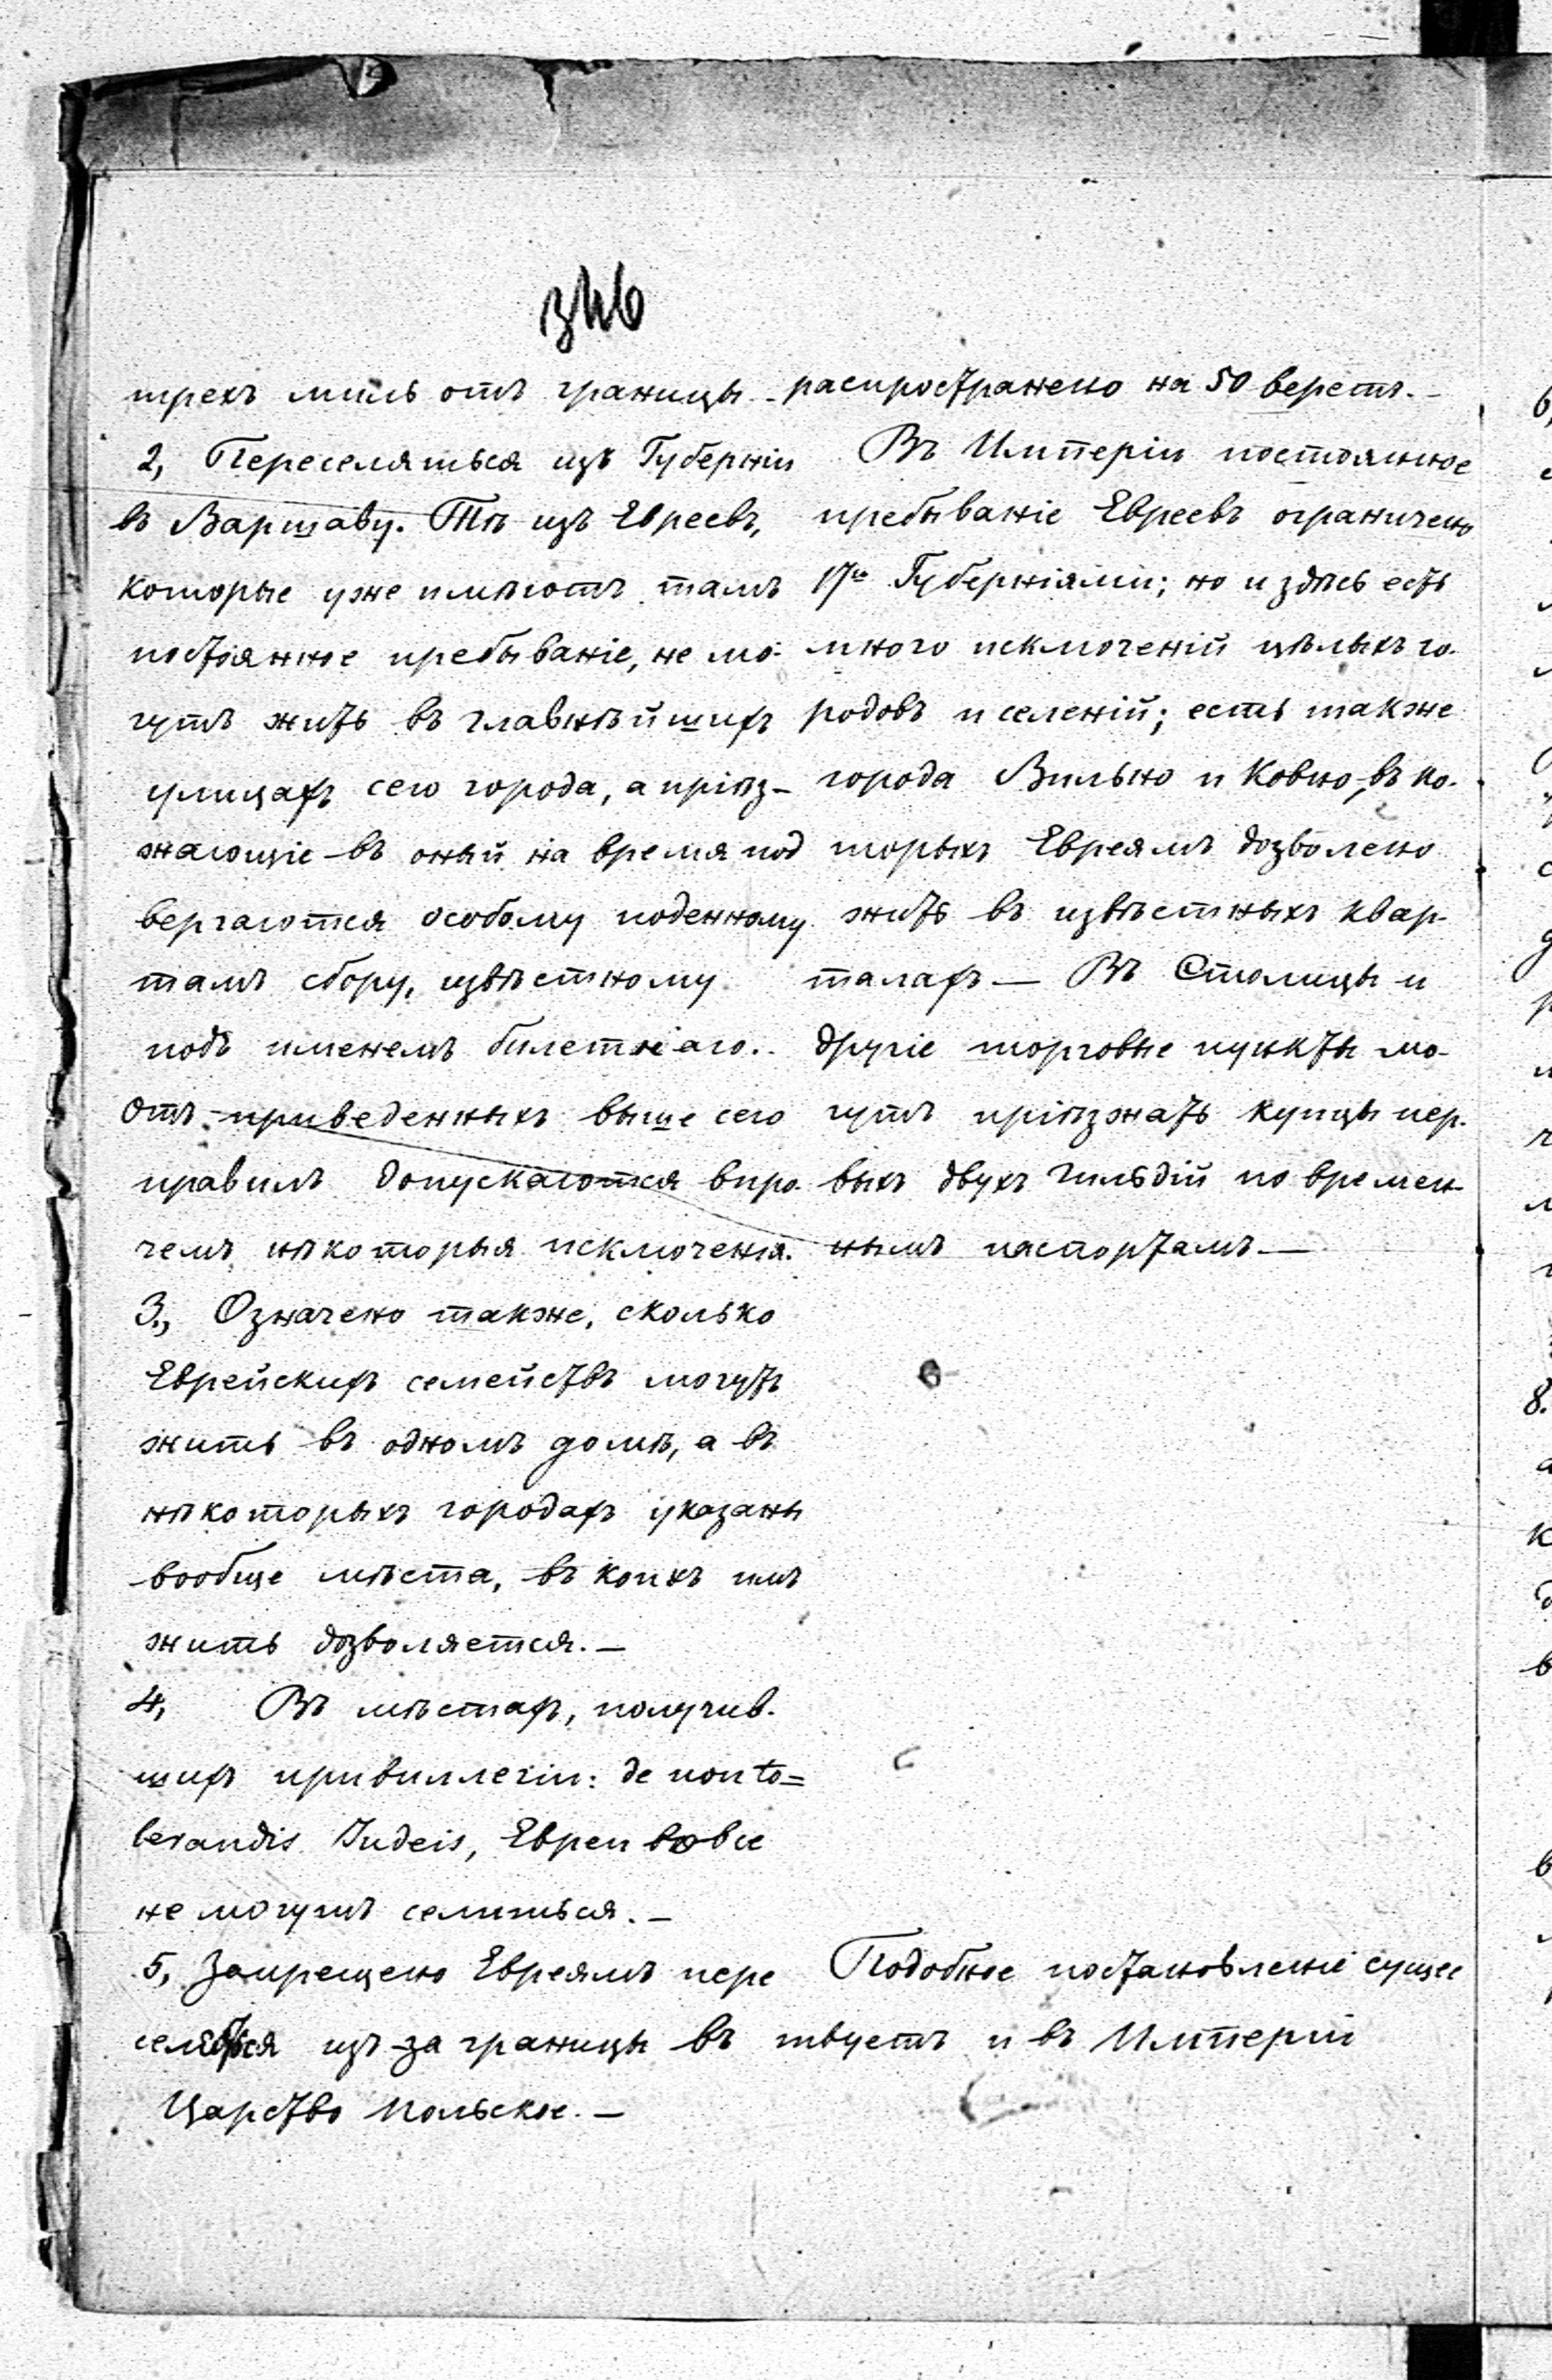 346
трехъ миль отъ границы.
2, Переселяться изъ Губерніи
въ Варшаву. Тѣ изъ Евреевъ,
которые уже имѣютъ тамъ
постоянное пребываніе, не мо-
гутъ жить въ главнѣйшихъ
улицахъ сего города, а пріѣз-
жающіе въ оный на время под
вергаются особому поденному
тамъ сбору, извѣстному
подъ именемъ билетнаго.
Отъ приведенныхъ выше сего
правилъ допускаются впро-
чемъ нѣкоторыя исключенія.
3., Означено также, сколько
Еврейскихъ семействъ могутъ
жить въ одномъ домѣ, а въ
нѣкоторыхъ городахъ указаны
вообще мѣста, въ коихъ имъ
жить дозволяется. —
4, Въ мѣстахъ, получив-
шихъ привиллегіи: de non to=
lerandis Judeis, Евреи вовсе
не могутъ селиться. —
5, Запрещено Евреямъ пере
селяться изъ-за границы въ
Царство Польское. —
распространено на 50 верстъ. —
Въ Имперіи постоянное
пребываніе Евреевъ ограничено
17ю Губерніями; но и здѣсь есть
много исключеній цѣлыхъ го-
родовъ и селеній; есть также
города Вильно и Ковно, въ ко-
торыхъ Евреямъ дозволено
жить въ извѣстныхъ квар-
талахъ — Въ Столицы и
другіе торговые пункты мо-
гутъ пріѣзжать купцы пер-
выхъ двухъ гильдій по времен-
нымъ паспортамъ —
Подобное постановленіе сущес
твуетъ и въ Имперіи